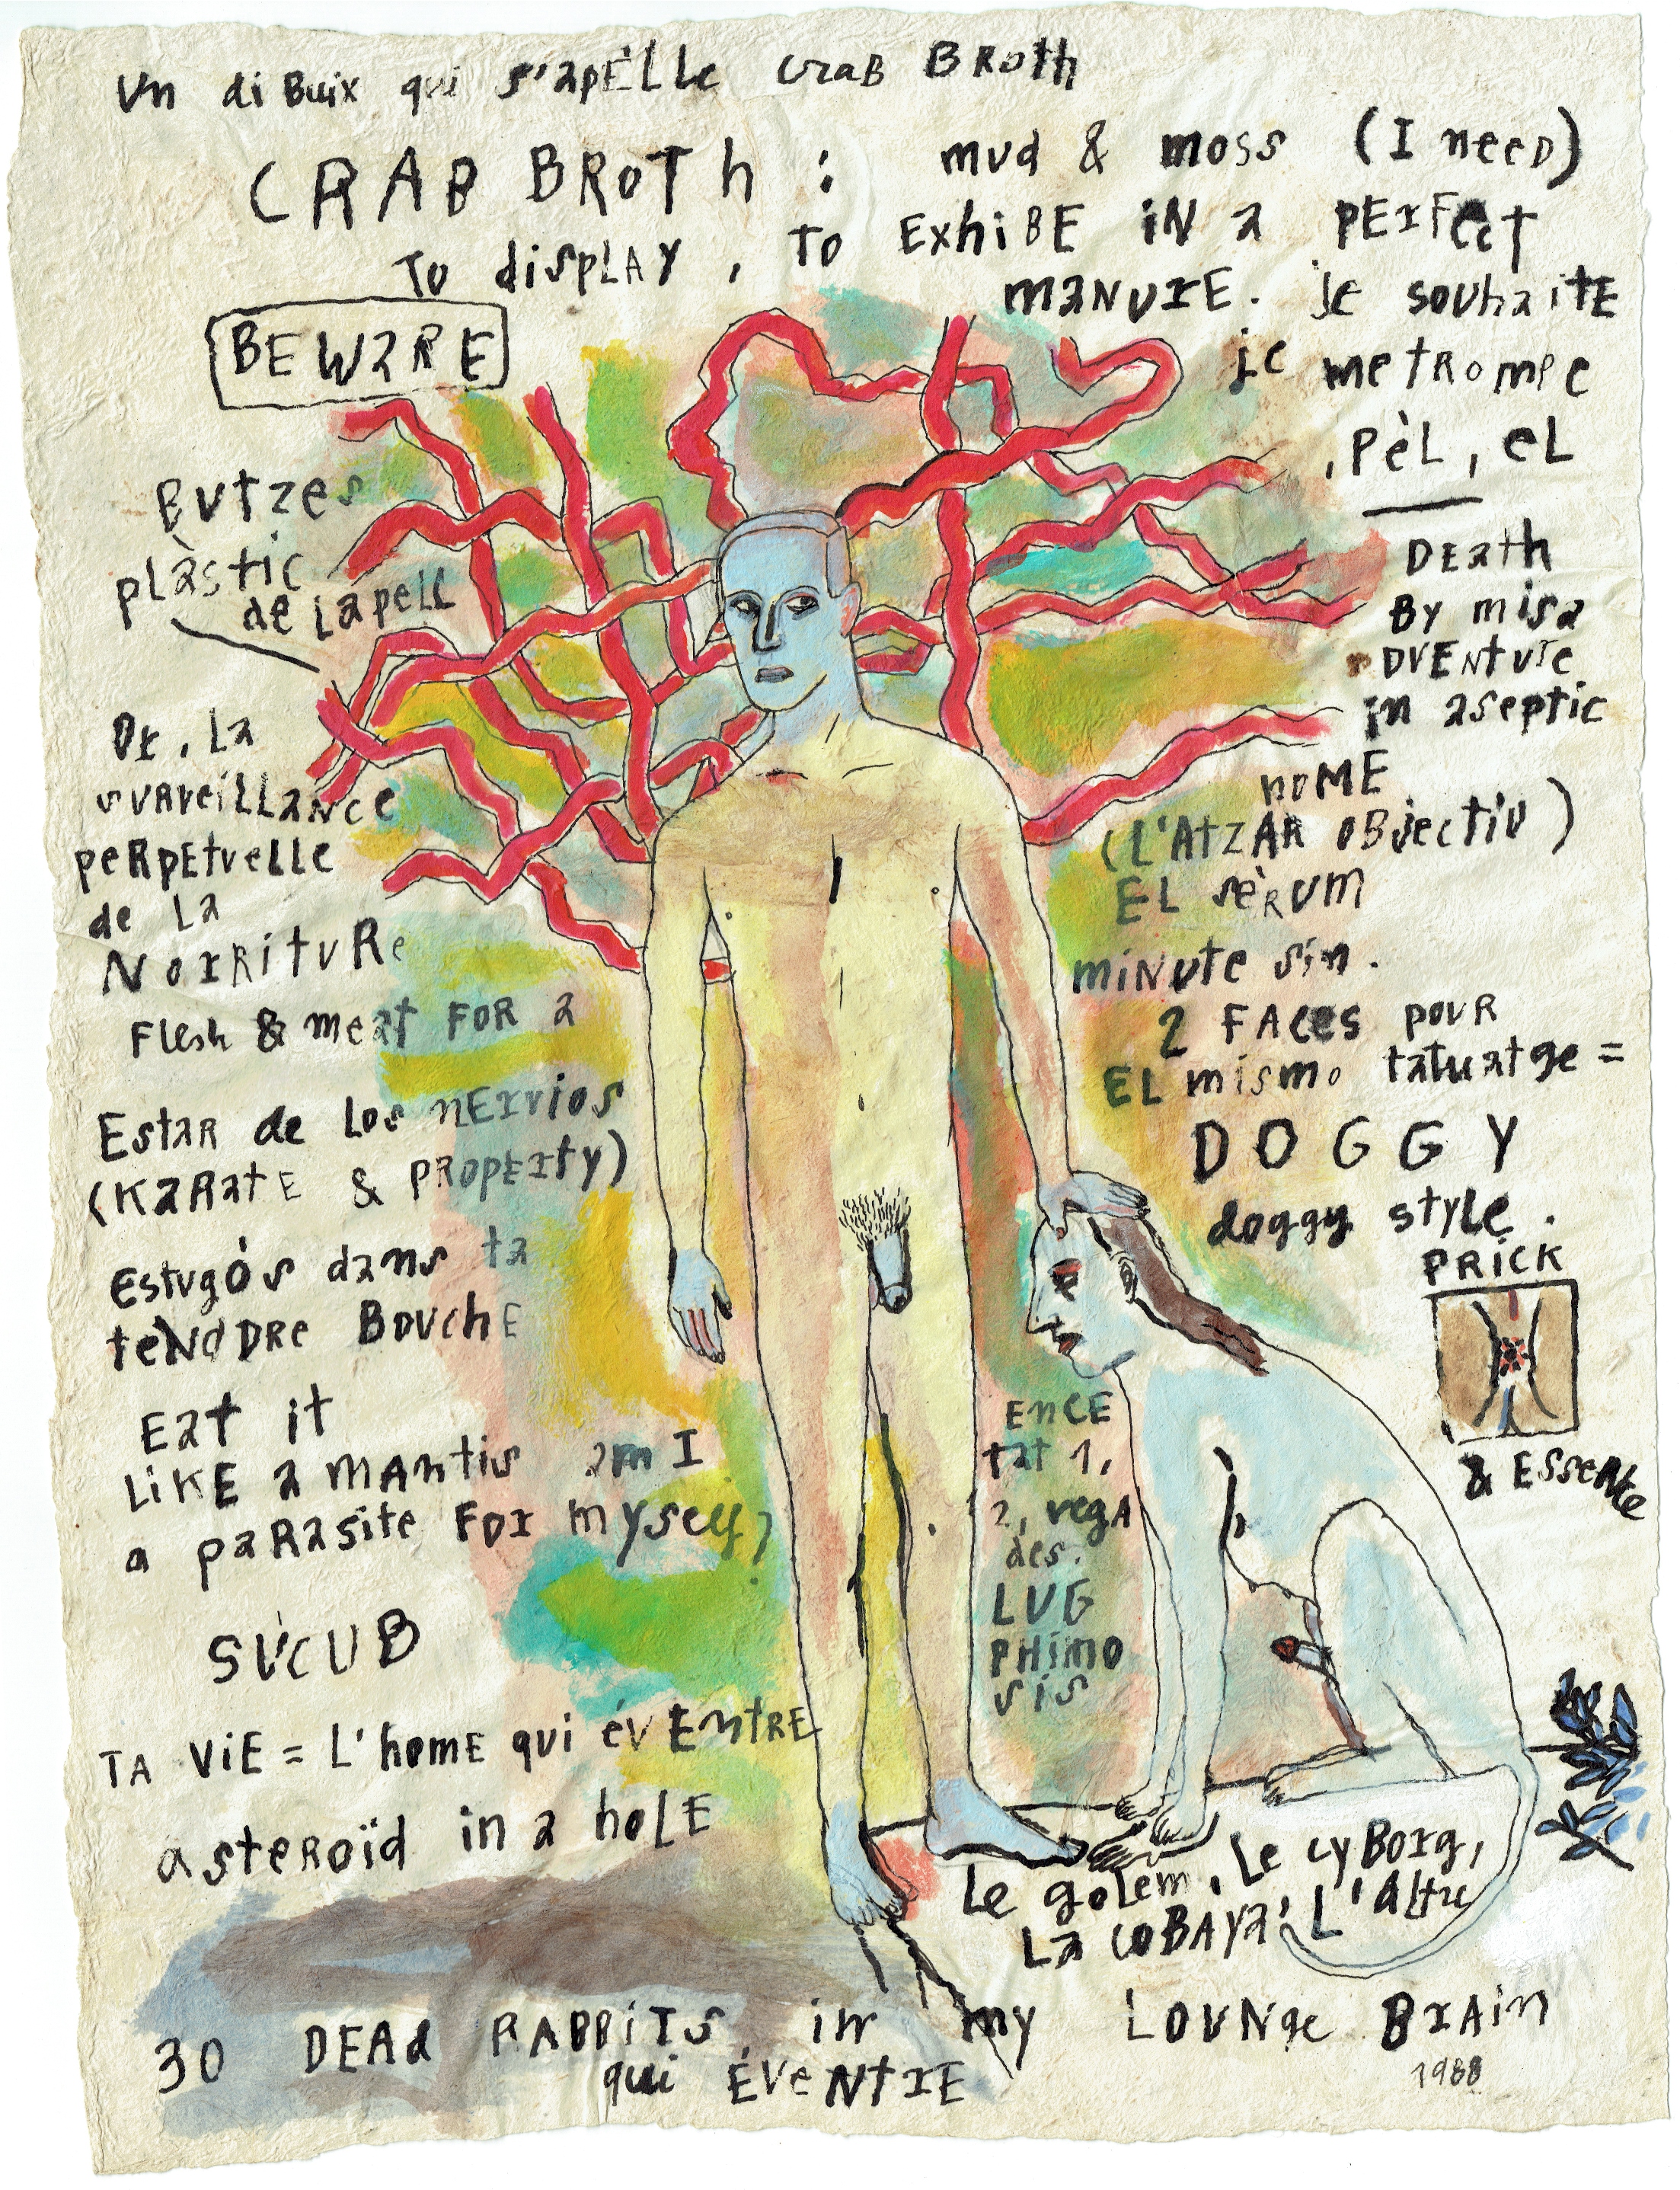 Un diBuix qui s'apÈLLe CraB BRoth
CRAB BRoTh : mud & moss (I need)
To displAY, To ExhiBE iN a PErFect
maNurE. je souhaitE
BEWaRE
je me tRompe
, PèL, eL
Butzes
plàstic
de la pell
DEath
By misa
DVEnture
in aseptic
Or, La
survreiLLaNce
peRpEtueLLe
de La
NorRituRe
hoME
(L'AtZAR oBjectiu)
EL sèRum
miNute sin.
Flesh & meat FOR a
2 FAces pouR
EL mismo tatuatge =
EstaR de Los nErvios
(KaRatE & PROpErty)
DOGGY
doggy style.
Estugós dans ta
teNdDRe BouchE
PRiCK
& EsseNte
Eat it
LiKE a mAntis am I
a paRasite For myself?
EncE
tat 1,
2, vegA
des.
LUG
PHimo
sis
SÚCUB
TA ViE = L'homE qui évEntRE
asteRoïd in a hoLE
Le goLem, Le cyBorg,
La coBAYa, L'Altre
30 DEAd RABBiTS in my LOUNge BrAin
qui ÉVeNtrE
1988